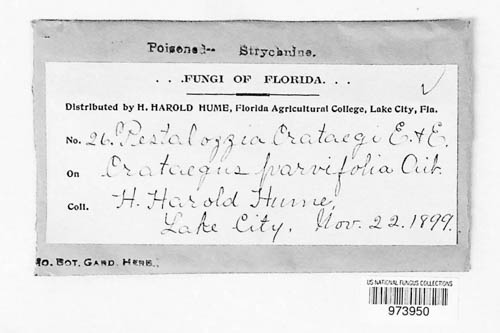 Poisoned-- Strychnine.
. . .FUNGI OF FLORIDA. . .
Distributed by H. HAROLD HUME, Florida Agricultural College, Lake City, Fla.
No. 26. Pestalozzia Crataegi E. & E.
On Crataegus parvifolia Ait.
Coll. H. Harold Hume,
Lake City, Nov. 22. 1899.
MO. BOT. GARD. HERB.
US NATIONAL FUNGUS COLLECTIONS
973950